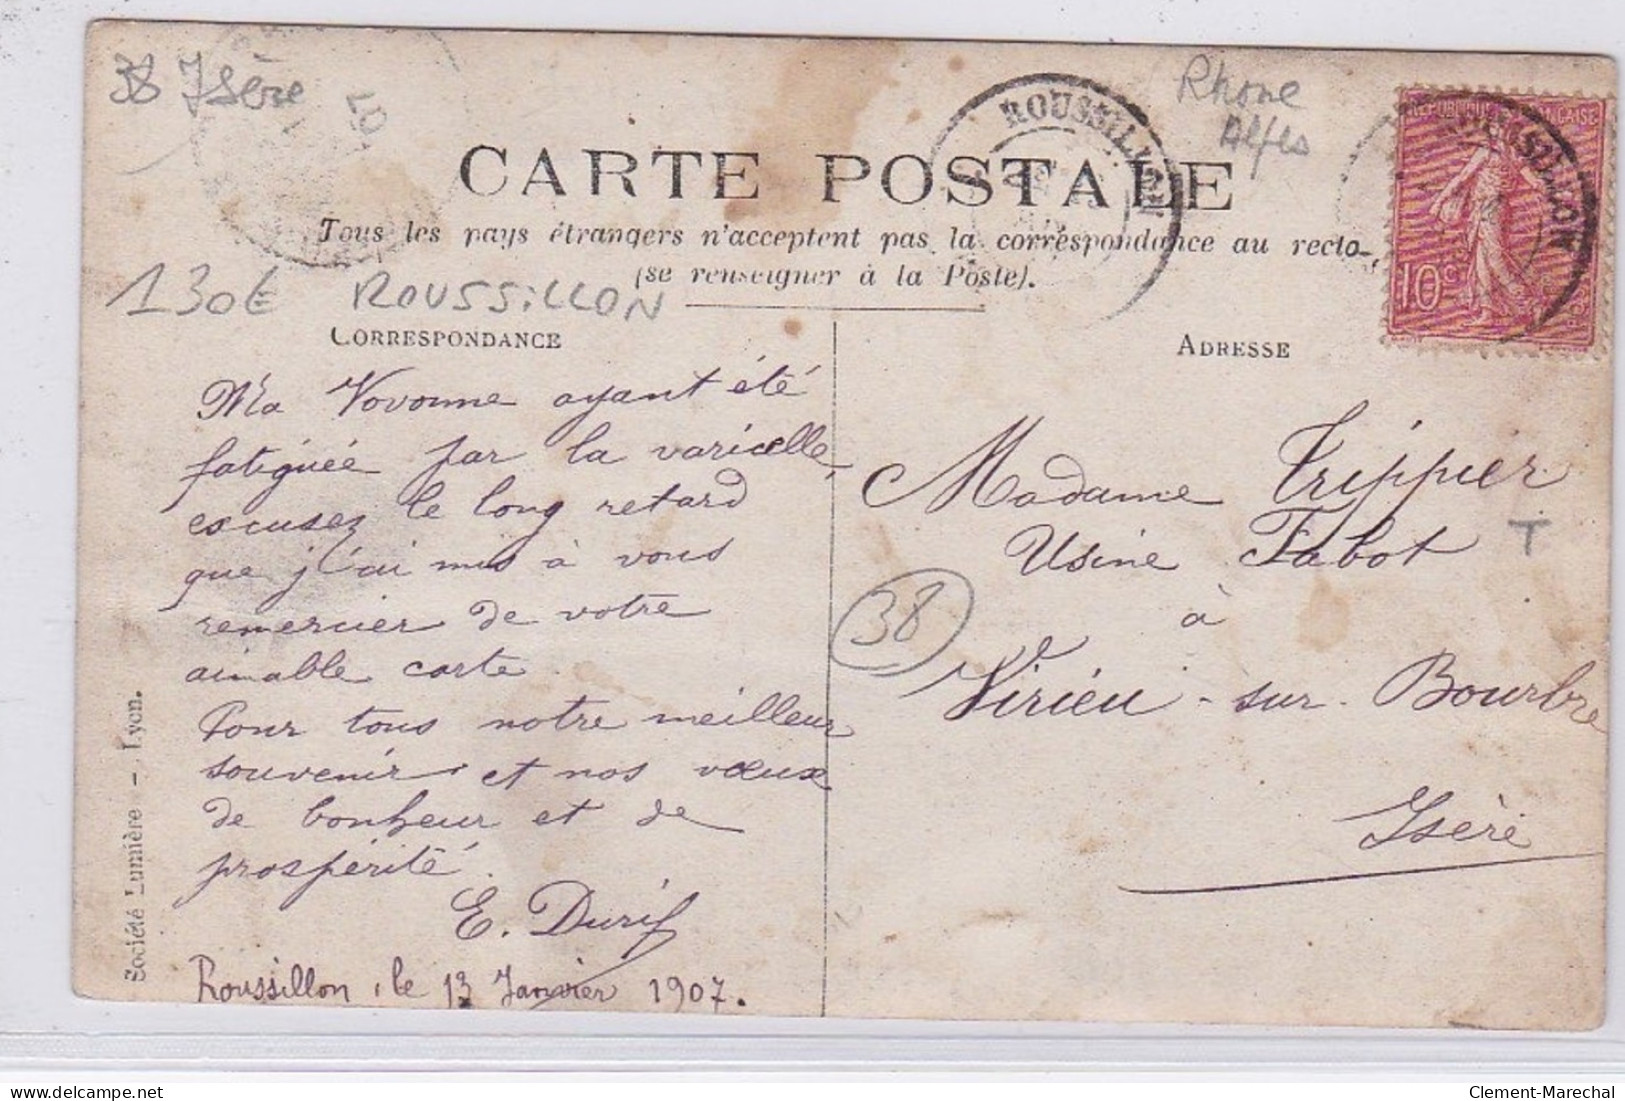 38 Isère
07
Rhone
Alpes
ROUSSILLON
ROUSSILLON
REPUBLIQUE FRANÇAISE
10c
CARTE POSTALE
Tous les pays étrangers n'acceptent pas la correspondance au recto
(se renseigner à la Poste).
130€ ROUSSILLON
CORRESPONDANCE
Ma Vovonne ayant été
fatiguée par la varicelle,
excusez le long retard
que j'ai mis à vous
remercier de votre
aimable carte.
Pour tous notre meilleur
souvenir et nos vœux
de bonheur et de
prospérité.
E. Durif
Roussillon, le 13 Janvier 1907.
Société Lumière - Lyon.
ADRESSE
Madame Trippier
Usine Fabot
T
à
38
Virieu-sur-Bourbre
Isère
delcampe.net
Clement-Marechal